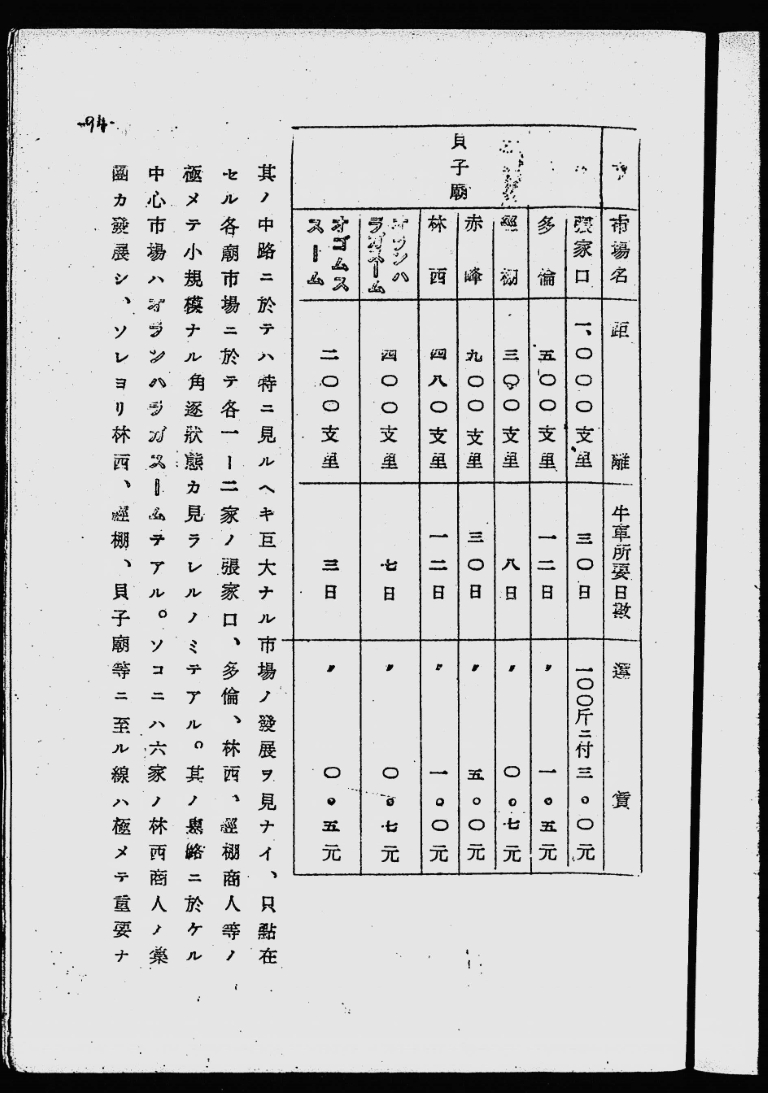 -94-
市場名 距離 牛車所要日數 運賃
貝子廟
張家口 一、〇〇〇支里 三〇日 一〇〇斤ニ付三。〇元
多倫 五〇〇支里 一二日 〃 一。五元
經棚 三〇〇支里 八日 〃 〇。七元
赤峰 九〇〇支里 三〇日 〃 五。〇元
林西 四八〇支里 一二日 〃 一。〇元
オランハラガスーム 四〇〇支里 七日 〃 〇。七元
オゴムススーム 二〇〇支里 三日 〃 〇。五元
其ノ中路ニ於テハ特ニ見ルヘキ巨大ナル市場ノ發展ヲ見ナイ、只點在
セル各廟市場ニ於テ各一ー二家ノ張家口、多倫、林西、經棚商人等ノ
極メテ小規模ナル角逐狀態カ見ラレルノミテアル。其ノ裏路ニ於ケル
中心市場ハオランハラガスームテアル。ソコニハ六家ノ林西商人ノ業
カ發展シ、ソレヨリ林西、經棚、貝子廟等ニ至ル線ハ極メテ重要ナ